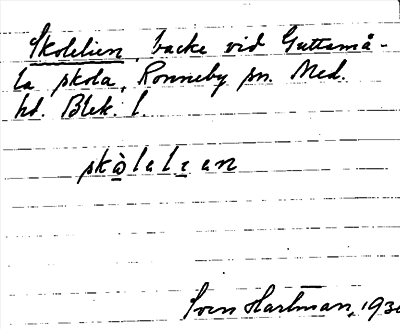 Skolelien, backe vid Guttamå-
la skola, Ronneby sn. Med.
hd. Blek. l.
skò̱lalɪ̱an
Sven Hartman, 193